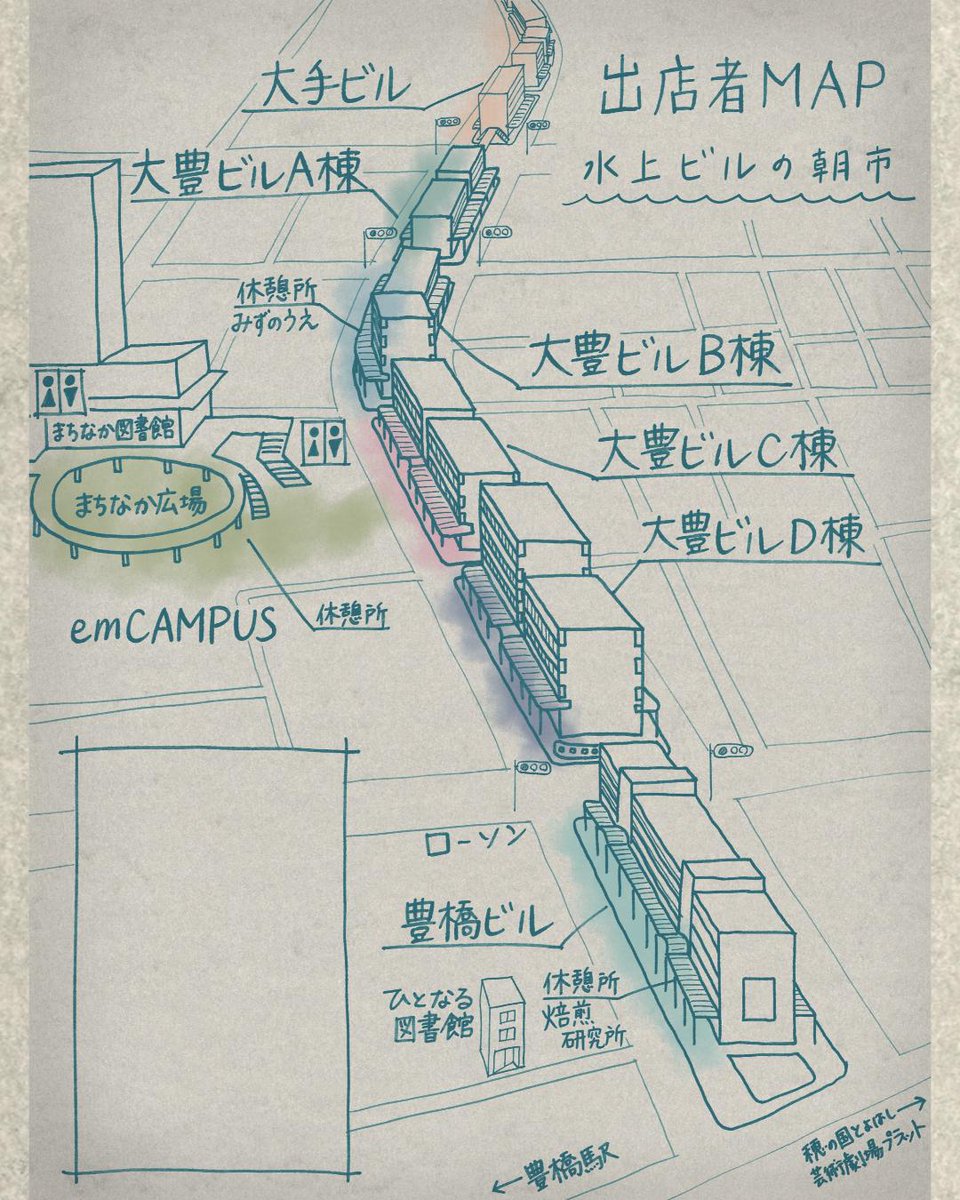 出店者MAP
水上ビルの朝市
大手ビル
大豊ビルA棟
休憩所
みずのうえ
大豊ビルB棟
まちなか図書館
大豊ビルC棟
まちなか広場
大豊ビルD棟
emCAMPUS
休憩所
ローソン
豊橋ビル
ひとなる
図書館
休憩所
焙煎
研究所
穂の国とよはし→
芸術劇場プラット
←豊橋駅